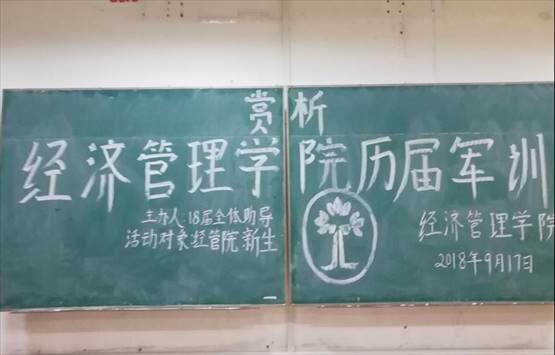 赏析
经济管理学院历届军训
主办人:18届全体助导
活动对象:经管院新生
经济管理学院
2018年9月17日